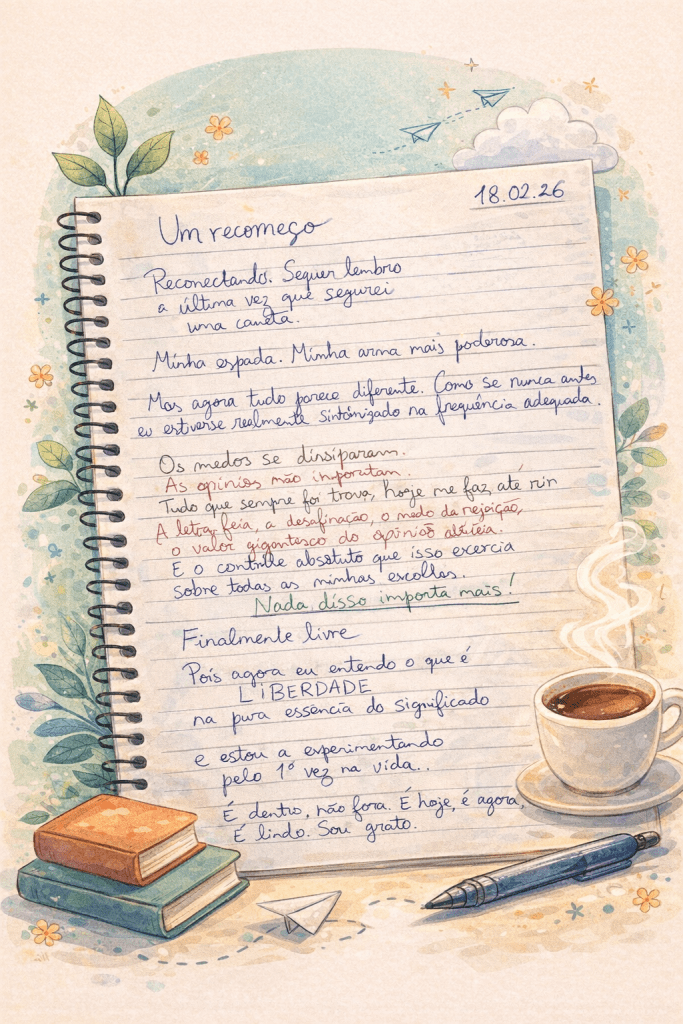 18.02.26
Um recomeço
Reconectando. Sequer lembro
a última vez que segurei
uma caneta.
Minha espada. Minha arma mais poderosa.
Mas agora tudo parece diferente. Como se nunca antes
eu estivesse realmente sintonizado na frequência adequada.
Os medos se dissiparam.
As opiniões não importam.
Tudo que sempre foi trava, hoje me faz até rir
A letra feia, a desafinação, o medo da rejeição,
o valor gigantesco da opinião alheia.
E o controle absoluto que isso exercia
sobre todas as minhas escolhas.
Nada disso importa mais!
Finalmente livre
Pois agora eu entendo o que é
LIBERDADE
na pura essência do significado
e estou a experimentando
pela 1ª vez na vida..
É dentro, não fora. É hoje, é agora,
É lindo. Sou grato.